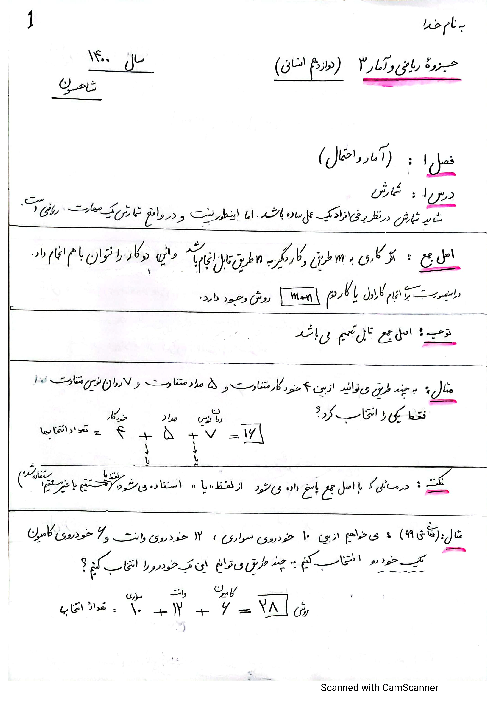 به نام خدا
1
جزوهٔ ریاضی و آمار ۳ (دوازدهم انسانی)
سال ۱۴۰۰
شاهسون
فصل ۱ : (آمار و احتمال)
درس ۱ : شمارش
شاید شمارش در نظر برخی افراد یک عمل ساده باشد. اما اینطور نیست و در واقع شمارش یک مهارت ریاضی است.
اصل جمع : اگر کاری به m طریق و کار دیگر به n طریق قابل انجام باشد و این دو کار را نتوان با هم انجام داد.
در اینصورت برای انجام کار اول یا کار دوم m+n روش وجود دارد.
توجه : اصل جمع قابل تعمیم می باشد
مثال : به چند طریق می توانید از بین ۴ خودکار متفاوت و ۵ مداد متفاوت و ۷ روان نویس متفاوت
فقط یکی را انتخاب کرد؟
خودکار مداد روان نویس
تعداد انتخابها = ۴ + ۵ + ۷ = ۱۶
یا یا
نکته : در مسائلی که با اصل جمع پاسخ داده می شود از لفظ «یا» استفاده می شود (مستقیم یا غیر مستقیم استفاده شده)
مثال : ( ۹۹) : می خواهیم از بین ۱۰ خودروی سواری ، ۱۲ خودروی وانت و ۶ خودروی کامیون
یک خودرو انتخاب کنیم به چند طریق می توانیم این یک خودرو را انتخاب کنیم؟
سواری وانت کامیون
تعداد انتخاب = ۱۰ + ۱۲ + ۶ = ۲۸ روش
Scanned with CamScanner